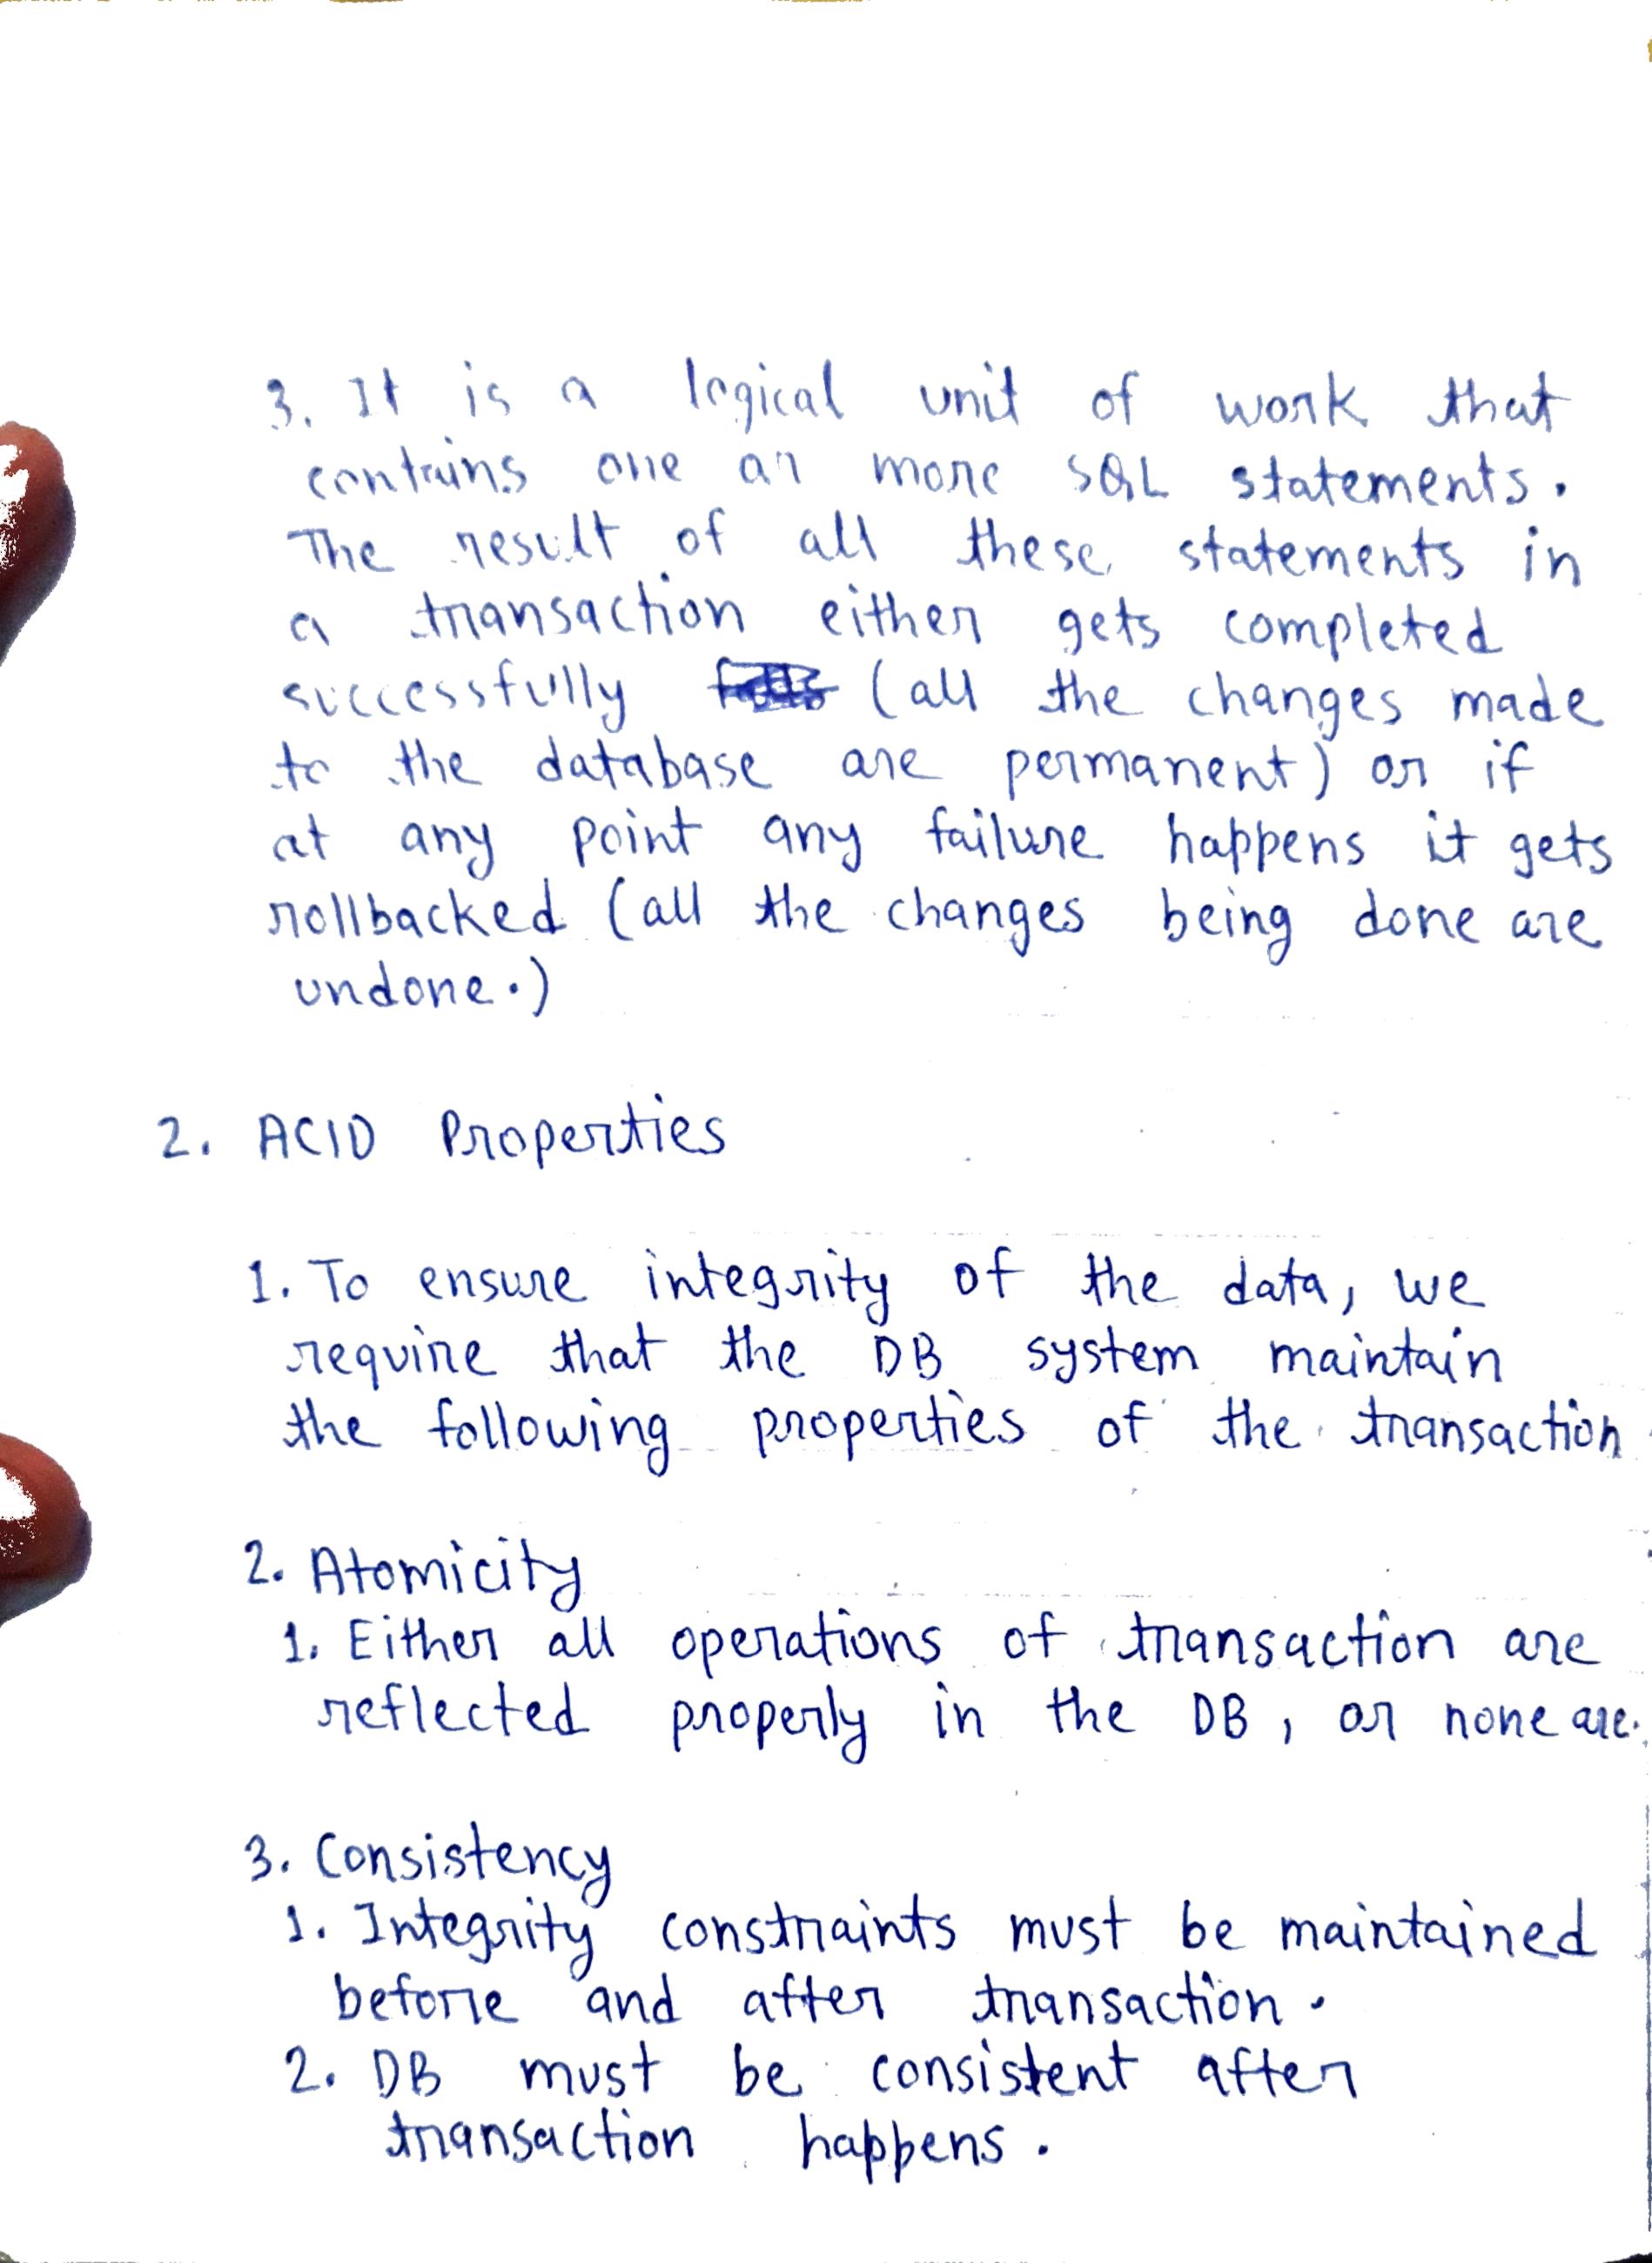 3. It is a logical unit of work that
contains one or more SQL statements.
The result of all these statements in
a transaction either gets completed
successfully (all the changes made
to the database are permanent) or if
at any point any failure happens it gets
rollbacked (all the changes being done are
undone.)
2. ACID Properties
1. To ensure integrity of the data, we
require that the DB system maintain
the following properties of the transaction
2. Atomicity
1. Either all operations of transaction are
reflected properly in the DB, or none are.
3. Consistency
1. Integrity constraints must be maintained
before and after transaction.
2. DB must be consistent after
transaction happens.